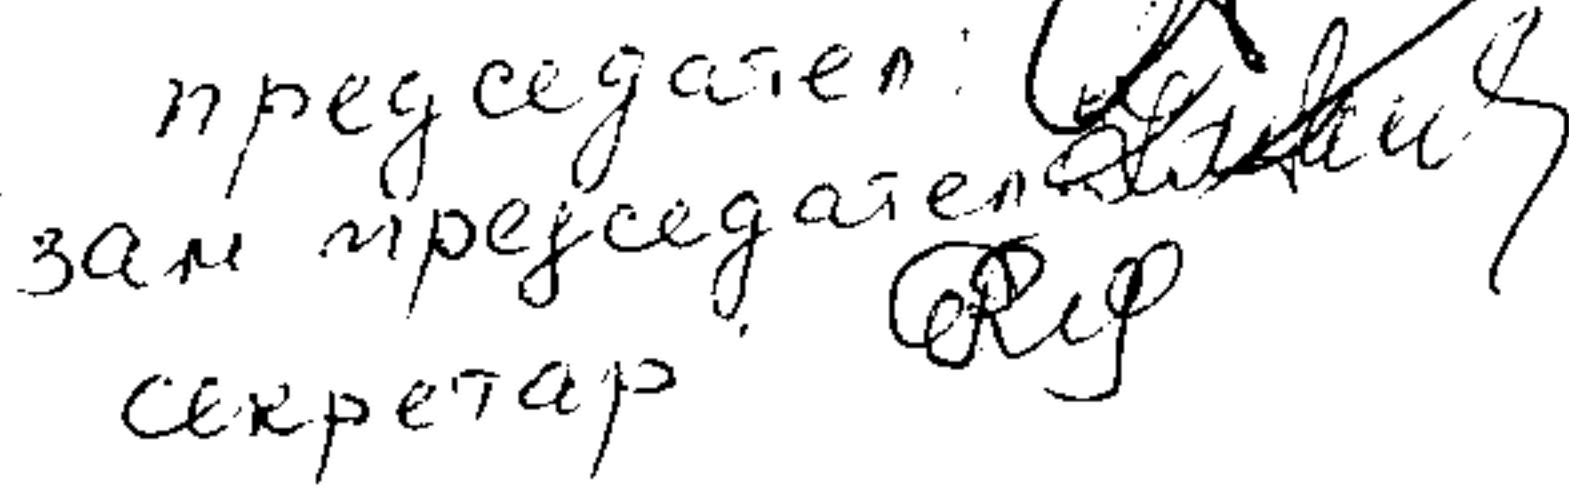 председател:
зам председател
секретар